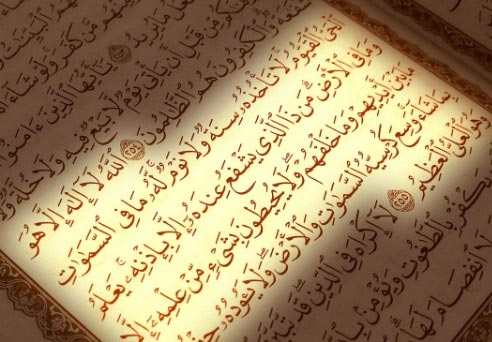 مَّن كَفَرَ وَلَوْ شَآءَ
مَا يُرِيدُ ٢٥٣ يَٰٓأَيُّهَا ٱلَّذِينَ ءَامَنُوٓا۟
مِّن قَبْلِ أَن يَأْتِىَ يَوْمٌ لَّا بَيْعٌ فِيهِ وَلَا خُلَّةٌ
وَٱلْكَٰفِرُونَ هُمُ ٱلظَّٰلِمُونَ ٢٥٤ ٱللَّهُ لَآ إِلَٰهَ إِلَّا هُوَ
ٱلْحَىُّ ٱلْقَيُّومُ لَا تَأْخُذُهُۥ سِنَةٌ وَلَا نَوْمٌ لَّهُۥ مَا فِى ٱلسَّمَٰوَٰتِ
وَمَا فِى ٱلْأَرْضِ مَن ذَا ٱلَّذِى يَشْفَعُ عِندَهُۥٓ إِلَّا بِإِذْنِهِۦ يَعْلَمُ
مَا بَيْنَ أَيْدِيهِمْ وَمَا خَلْفَهُمْ وَلَا يُحِيطُونَ بِشَىْءٍ مِّنْ عِلْمِهِۦٓ إِلَّا
بِمَا شَآءَ وَسِعَ كُرْسِيُّهُ ٱلسَّمَٰوَٰتِ وَٱلْأَرْضَ وَلَا يَـُٔودُهُۥ
وَهُوَ ٱلْعَلِىُّ ٱلْعَظِيمُ ٢٥٥ لَآ إِكْرَاهَ فِى ٱلدِّينِ قَد تَّبَيَّنَ
يَكْفُرْ بِٱلطَّٰغُوتِ وَيُؤْمِنۢ
لَا ٱنفِصَامَ لَهَا